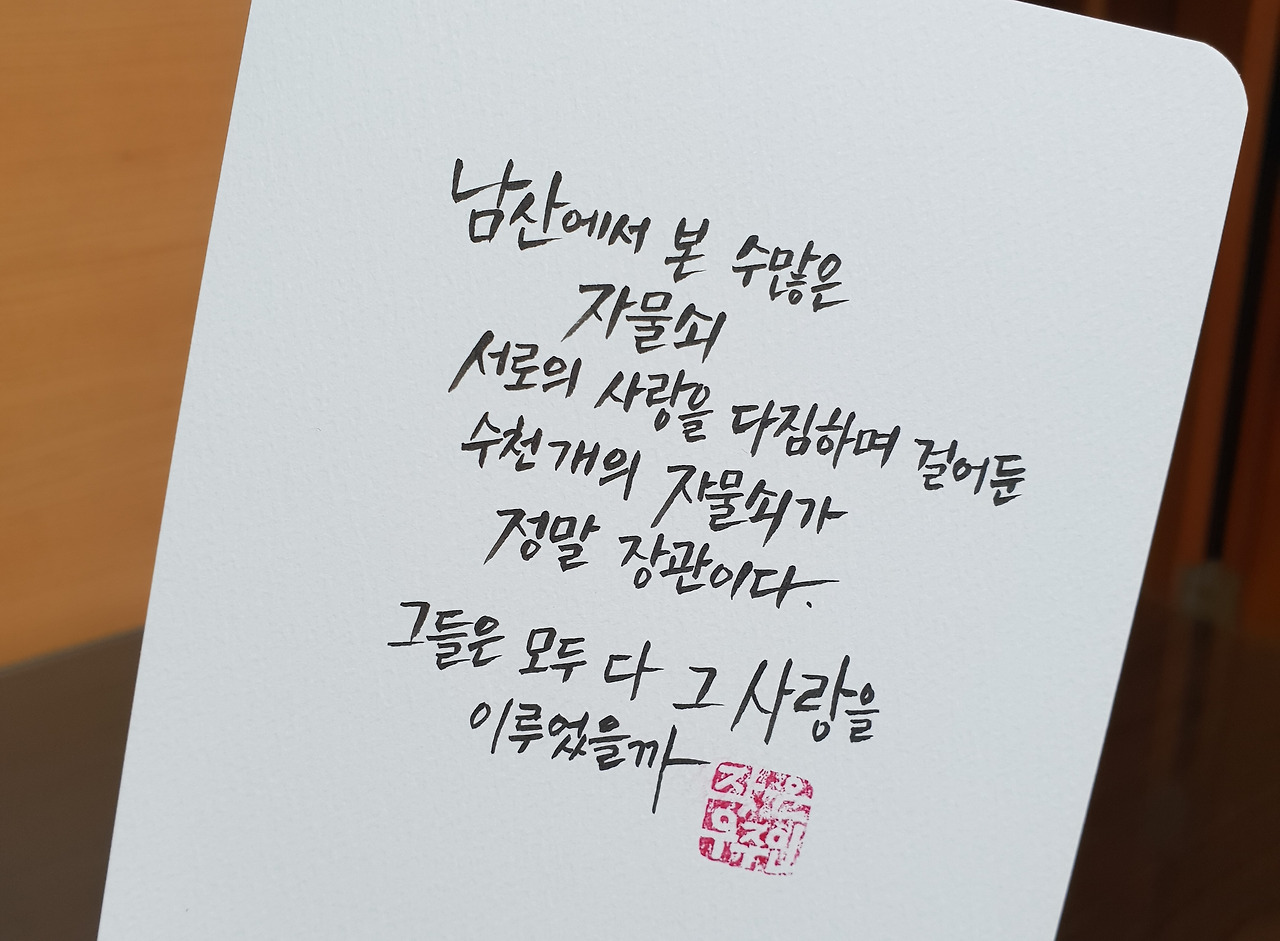 남산에서 본 수많은
자물쇠
서로의 사랑을 다짐하며 걸어둔
수천개의 자물쇠가
정말 장관이다.
그들은 모두 다 그 사랑을
이루었을까
작은
우주한